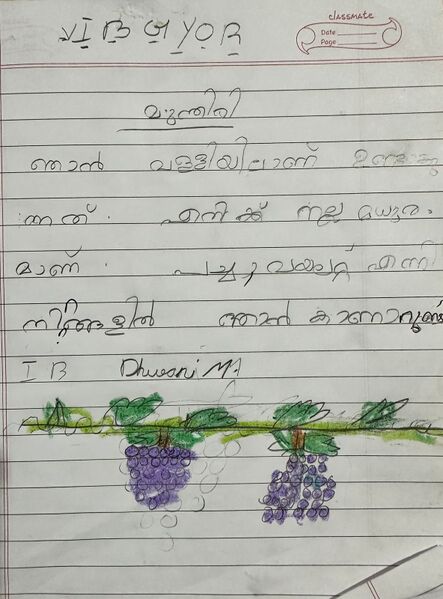 VIBGYOR
classmate
Date
Page
മുന്തിരി
ഞാൻ വള്ളിയിലാണ് ഉണ്ടാകു
ന്നത്. എനിക്ക് നല്ല മധുര
മാണ്. പച്ച, വയലറ്റ് എന്നീ
നിറങ്ങളിൽ ഞാൻ കാണാറുണ്ട്
I B Dhwani M.A